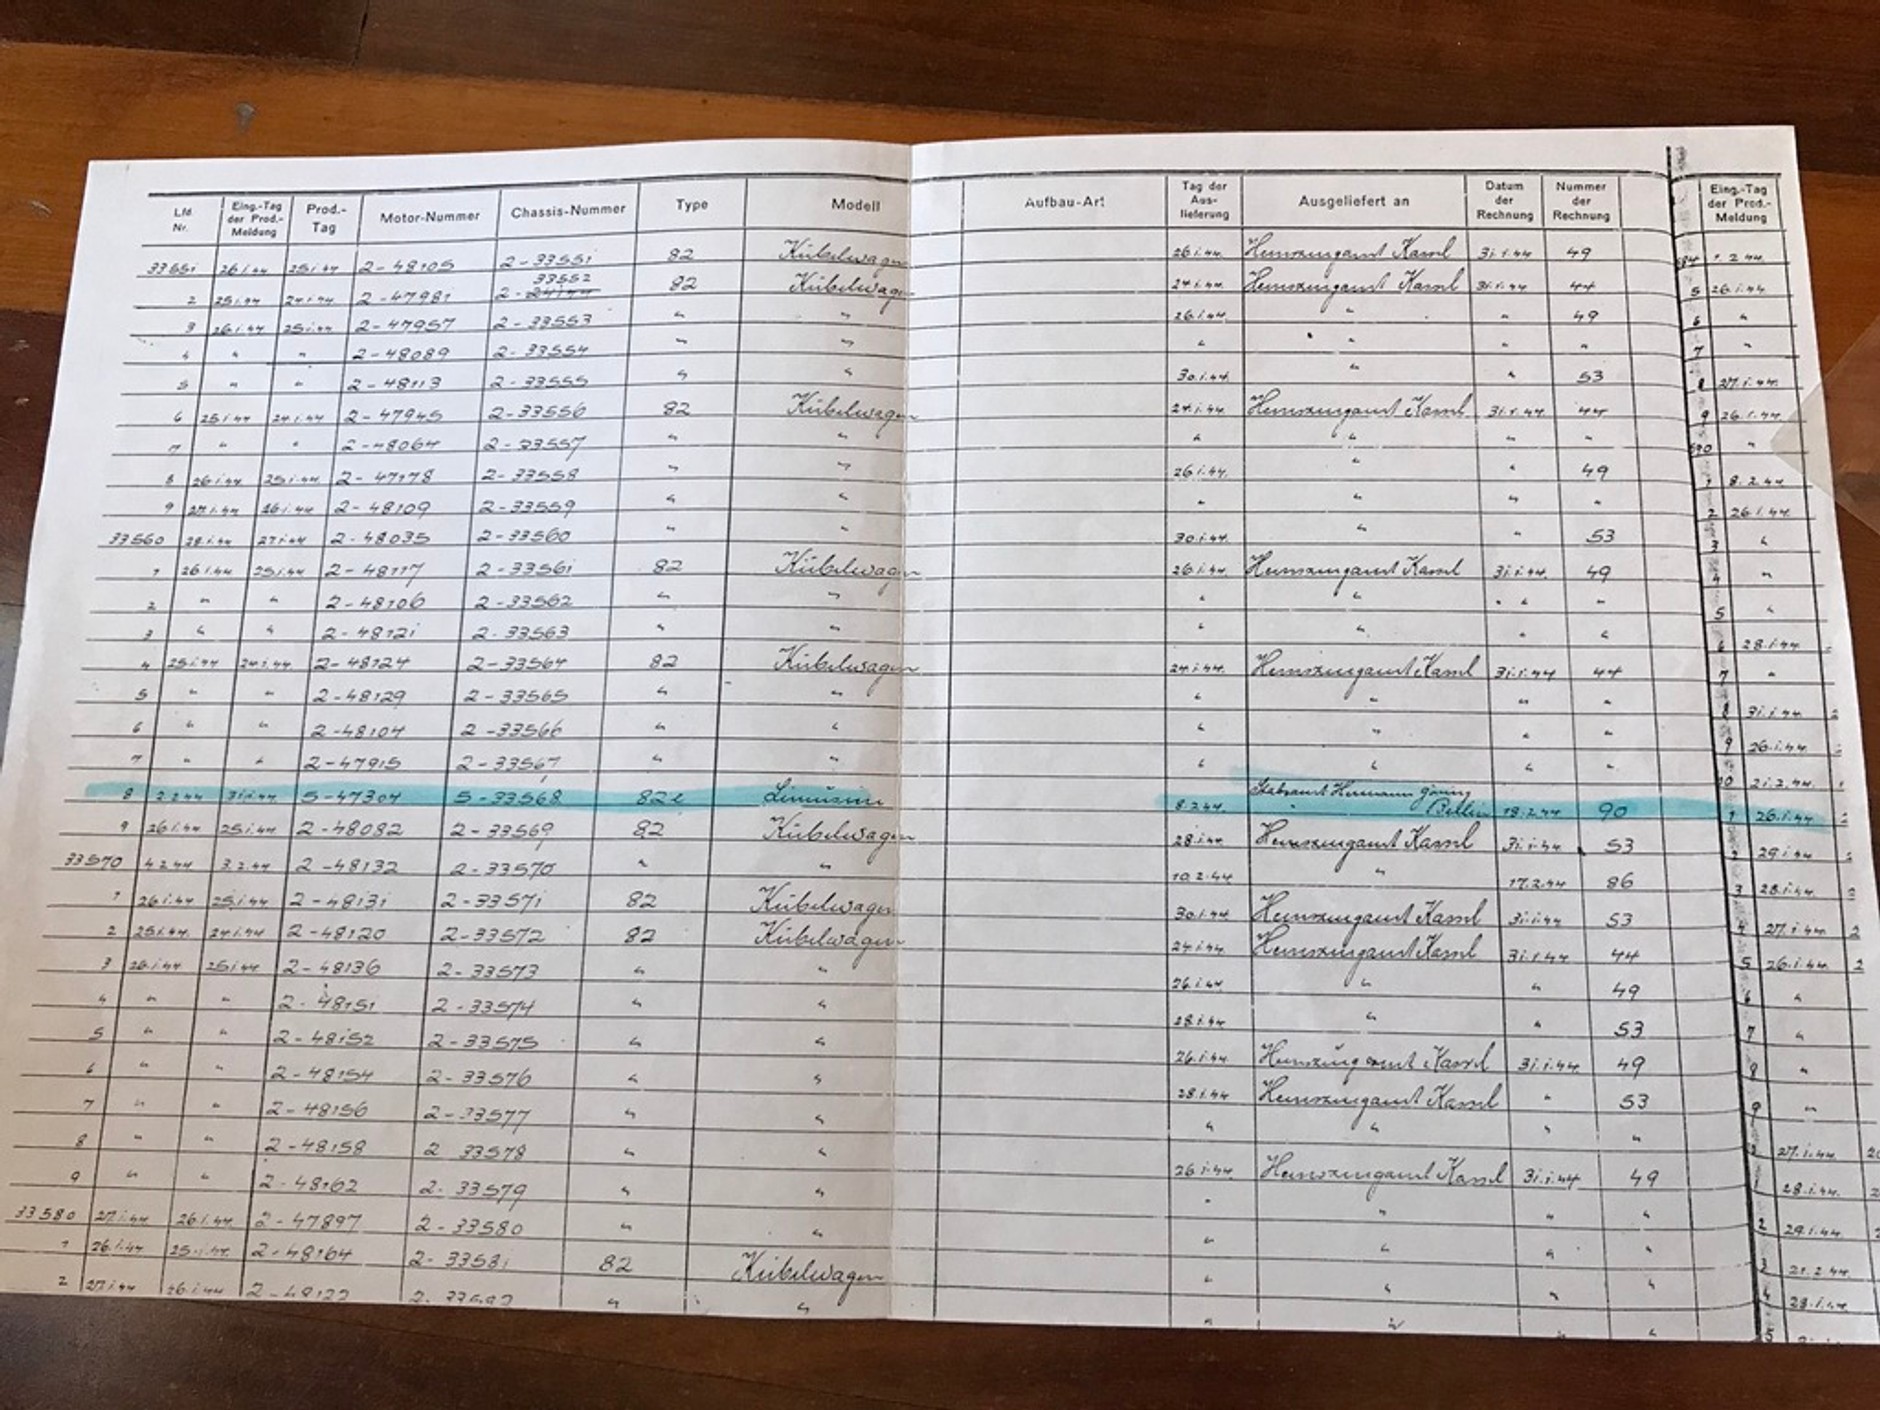 Lfd. Nr. Eing.-Tag der Prod.-Meldung Prod.-Tag Motor-Nummer Chassis-Nummer Type Modell Aufbau-Art Tag der Aus-lieferung Ausgeliefert an Datum der Rechnung Nummer der Rechnung Eing.-Tag der Prod.-Meldung
33551 26.1.44 25.1.44 2-48105 2-33551 82 Kübelwagen 26.1.44 Heimszeugamt Kassel 31.1.44 49 1.2.44
33552
2 25.1.44 24.1.44 2-47981 82 Kübelwagen 24.1.44 Heimszeugamt Kassel 31.1.44 44 5 26.1.44
3 26.1.44 25.1.44 2-47957 2-33553 " " 26.1.44 " " 49 6 "
4 " " 2-48089 2-33554 " " " " " " 7 "
5 " " 2-48113 2-33555 " " 30.1.44 " " 53 8 27.1.44
6 25.1.44 24.1.44 2-47945 2-33556 82 Kübelwagen 24.1.44 Heimszeugamt Kassel 31.1.44 44 9 26.1.44
7 " " 2-48064 2-33557 " " " " " " "
8 26.1.44 25.1.44 2-47178 2-33558 " " 26.1.44 " " 49 1 8.2.44
9 27.1.44 26.1.44 2-48109 2-33559 " " " " " " 2 26.1.44
33560 28.1.44 27.1.44 2-48035 2-33560 " " 30.1.44 " " 53 3 "
1 26.1.44 25.1.44 2-48117 2-33561 82 Kübelwagen 26.1.44 Heimszeugamt Kassel 31.1.44 49 4 "
2 " " 2-48106 2-33562 " " " " " " 5 "
3 " " 2-48121 2-33563 " " " " " " 6 28.1.44
4 25.1.44 24.1.44 2-48124 2-33564 82 Kübelwagen 24.1.44 Heimszeugamt Kassel 31.1.44 44 7 "
5 " " 2-48129 2-33565 " " " " " " 8 31.1.44
6 " " 2-48104 2-33566 " " " " " " 9 26.1.44
7 " " 2-47915 2-33567 " " " " " " 21.2.44
8 2.2.44 31.1.44 5-47304 5-33568 82e Limusine 8.2.44 Stabsamt Hermann Göring Berlin 18.2.44 90 1 26.1.44
9 26.1.44 25.1.44 2-48082 2-33569 82 Kübelwagen 28.1.44 Heimszeugamt Kassel 31.1.44 53 2 29.1.44
33570 4.2.44 3.2.44 2-48132 2-33570 " " 10.2.44 " 17.2.44 86 3 28.1.44
1 26.1.44 25.1.44 2-48131 2-33571 82 Kübelwagen 30.1.44 Heimszeugamt Kassel 31.1.44 53 4 27.1.44
2 25.1.44 24.1.44 2-48120 2-33572 82 Kübelwagen 24.1.44 Heimszeugamt Kassel 31.1.44 44 5 26.1.44
3 26.1.44 25.1.44 2-48136 2-33573 " " 26.1.44 " " 49 6 "
4 " " 2-48151 2-33574 " " 28.1.44 " " 53 7 "
5 " " 2-48152 2-33575 " " 26.1.44 Heimszeugamt Kassel 31.1.44 49 8 "
6 " " 2-48154 2-33576 " " 28.1.44 Heimszeugamt Kassel " 53 9 "
7 " " 2-48156 2-33577 " " " " " " 27.1.44
8 " " 2-48158 2 33578 " " 26.1.44 Heimszeugamt Kassel 31.1.44 49 1 28.1.44
9 " " 2-48162 2-33579 " " " " " " 2 29.1.44
33580 27.1.44 26.1.44 2-47897 2-33580 " " " " " " 3 21.2.44
1 26.1.44 25.1.44 2-48164 2-33581 82 Kübelwagen " " " " 4 28.1.44
2 27.1.44 26.1.44 " " " " " " 5